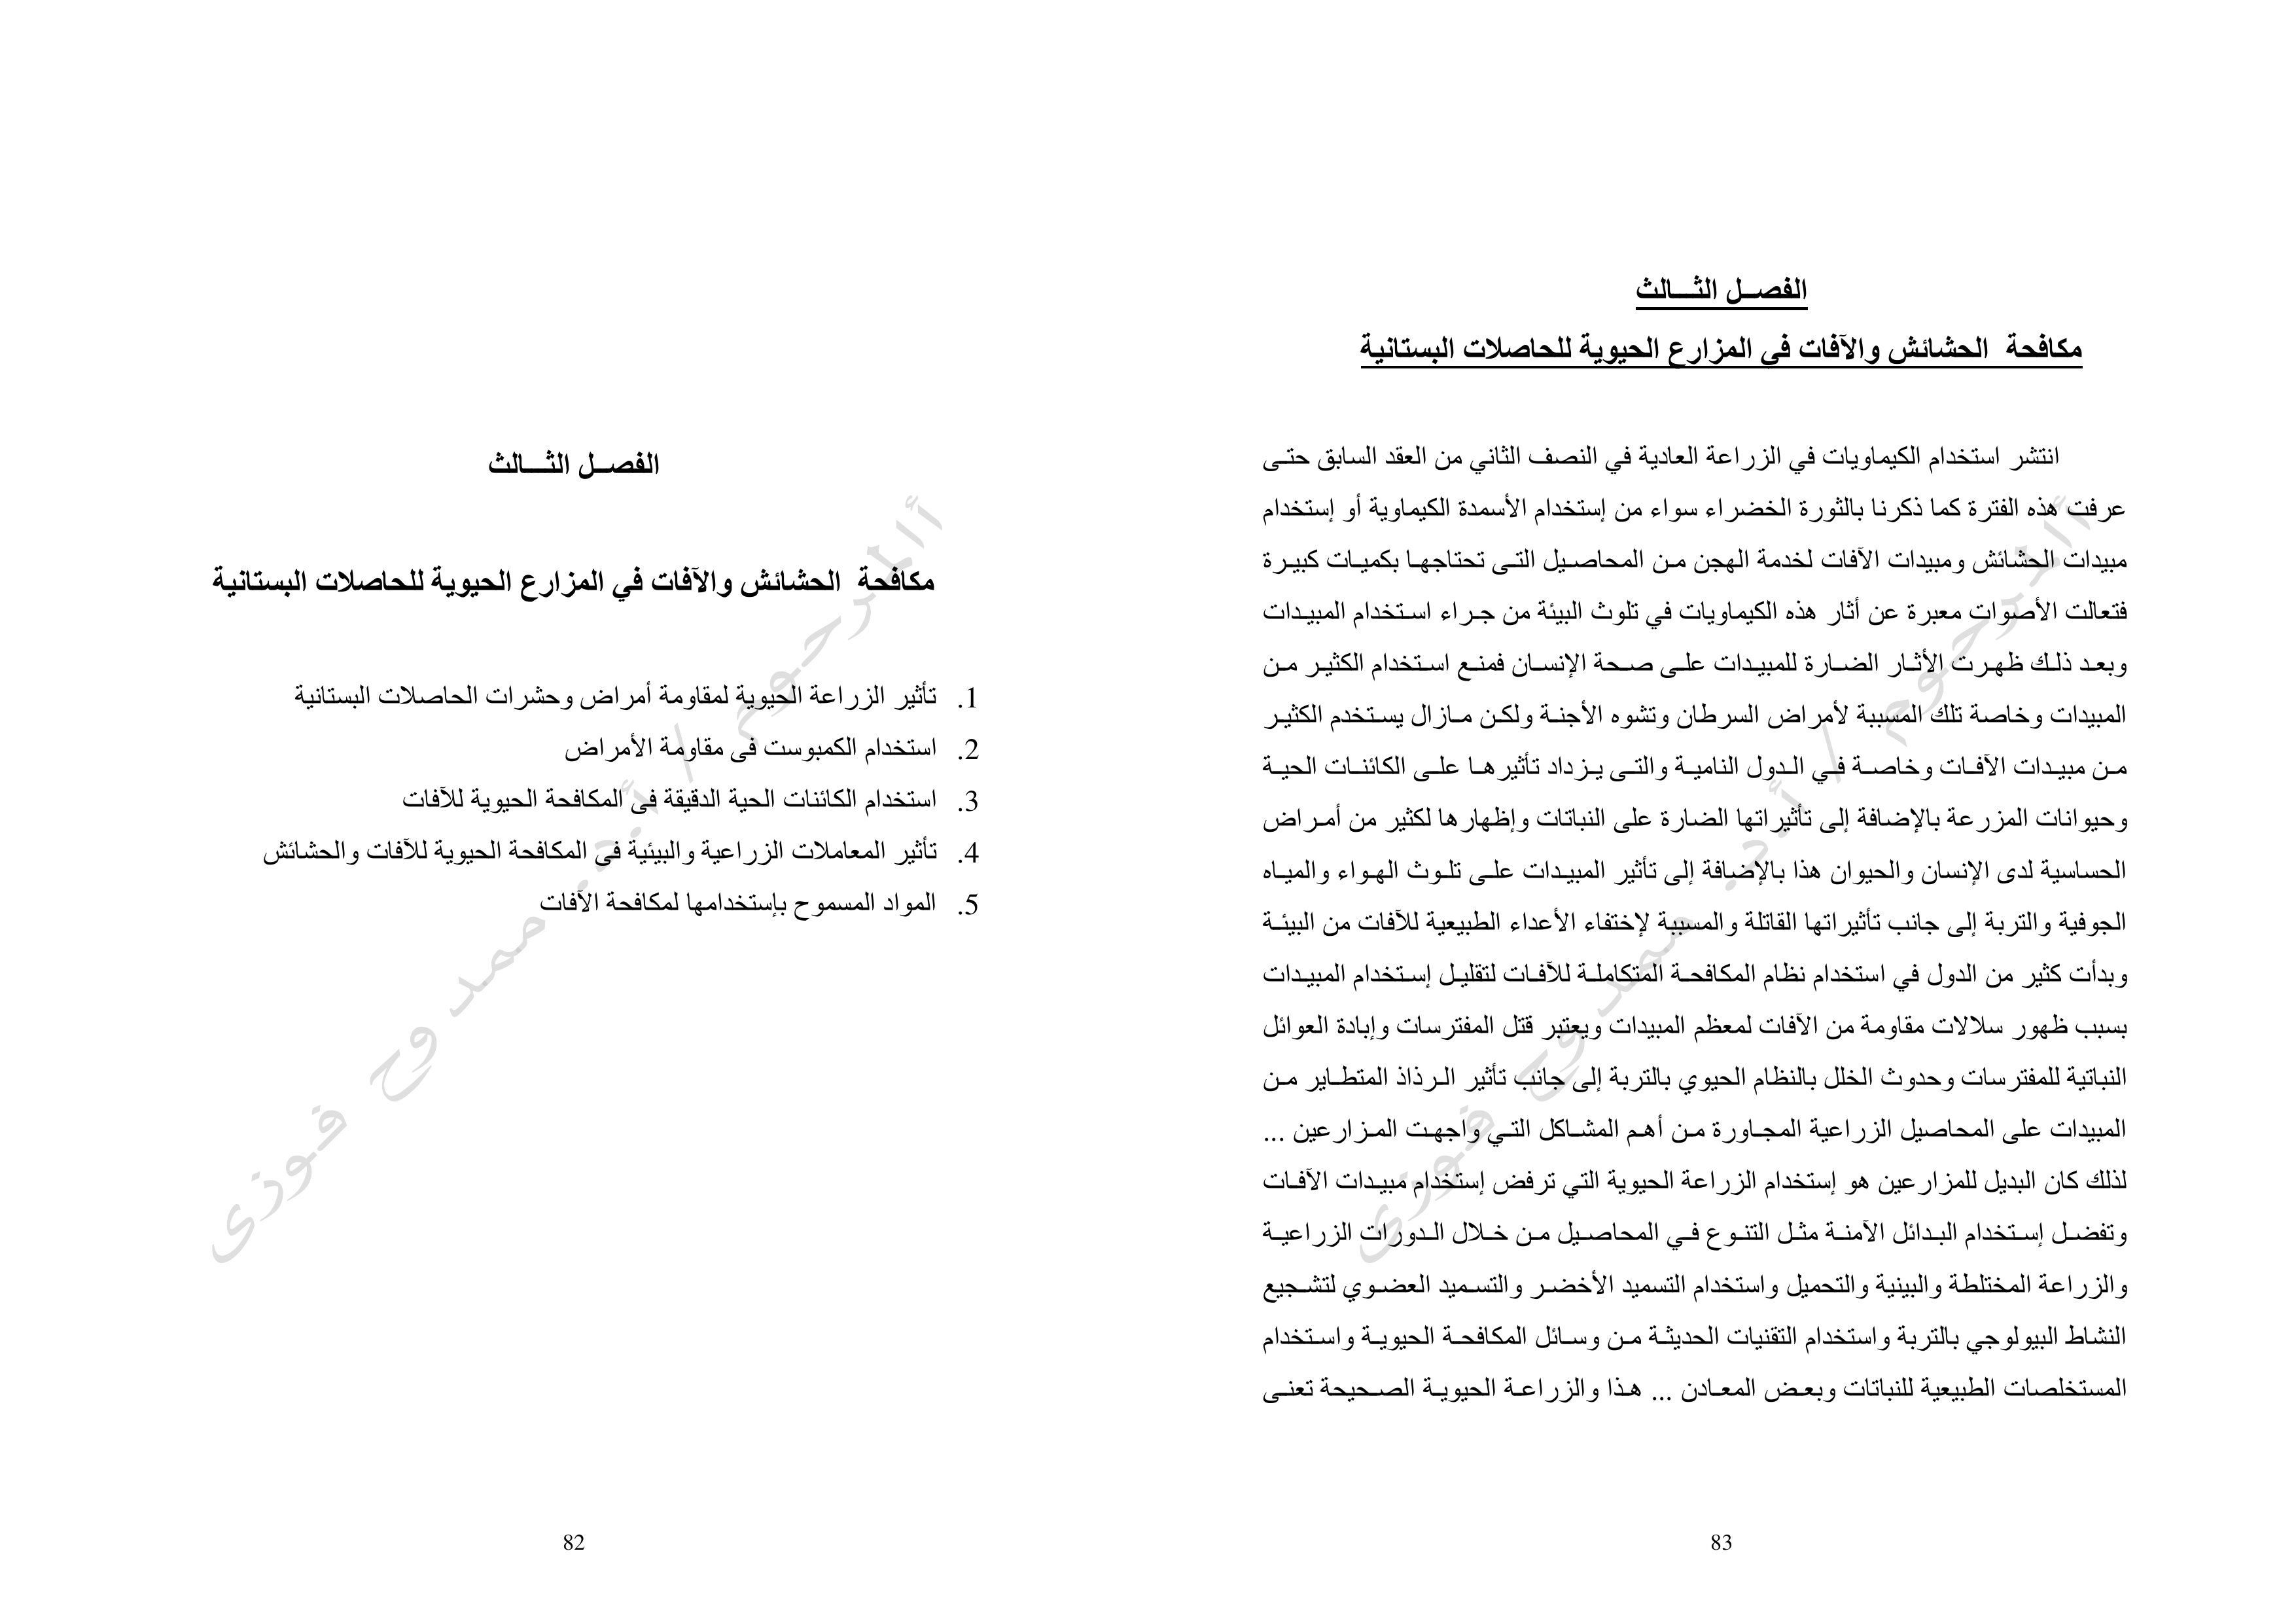 الفصــل الثـــالث
مكافحة الحشائش والآفات في المزارع الحيوية للحاصلات البستانية
1. تأثير الزراعة الحيوية لمقاومة أمراض وحشرات الحاصلات البستانية
2. استخدام الكمبوست فى مقاومة الأمراض
3. استخدام الكائنات الحية الدقيقة فى المكافحة الحيوية للآفات
4. تأثير المعاملات الزراعية والبيئية فى المكافحة الحيوية للآفات والحشائش
5. المواد المسموح بإستخدامها لمكافحة الآفات
ألمرحوم / أ.د. ممدوح فوزى
82
الفصــل الثـــالث
مكافحة الحشائش والآفات في المزارع الحيوية للحاصلات البستانية
انتشر استخدام الكيماويات في الزراعة العادية في النصف الثاني من العقد السابق حتى
عرفت هذه الفترة كما ذكرنا بالثورة الخضراء سواء من إستخدام الأسمدة الكيماوية أو إستخدام
مبيدات الحشائش ومبيدات الآفات لخدمة الهجن من المحاصيل التى تحتاجها بكميات كبيرة
فتعالت الأصوات معبرة عن أثار هذه الكيماويات في تلوث البيئة من جراء استخدام المبيدات
وبعد ذلك ظهرت الأثار الضارة للمبيدات على صحة الإنسان فمنع استخدام الكثير من
المبيدات وخاصة تلك المسببة لأمراض السرطان وتشوه الأجنة ولكن مازال يستخدم الكثير
من مبيدات الآفات وخاصة في الدول النامية والتى يزداد تأثيرها على الكائنات الحية
وحيوانات المزرعة بالإضافة إلى تأثيراتها الضارة على النباتات وإظهارها لكثير من أمراض
الحساسية لدى الإنسان والحيوان هذا بالإضافة إلى تأثير المبيدات على تلوث الهواء والمياه
الجوفية والتربة إلى جانب تأثيراتها القاتلة والمسببة لإختفاء الأعداء الطبيعية للآفات من البيئة
وبدأت كثير من الدول في استخدام نظام المكافحة المتكاملة للآفات لتقليل إستخدام المبيدات
بسبب ظهور سلالات مقاومة من الآفات لمعظم المبيدات ويعتبر قتل المفترسات وإبادة العوائل
النباتية للمفترسات وحدوث الخلل بالنظام الحيوي بالتربة إلى جانب تأثير الرذاذ المتطاير من
المبيدات على المحاصيل الزراعية المجاورة من أهم المشاكل التي واجهت المزارعين ...
لذلك كان البديل للمزارعين هو إستخدام الزراعة الحيوية التي ترفض إستخدام مبيدات الآفات
وتفضل إستخدام البدائل الآمنة مثل التنوع في المحاصيل من خلال الدورات الزراعية
والزراعة المختلطة والبينية والتحميل واستخدام التسميد الأخضر والتسميد العضوي لتشجيع
النشاط البيولوجي بالتربة واستخدام التقنيات الحديثة من وسائل المكافحة الحيوية واستخدام
المستخلصات الطبيعية للنباتات وبعض المعادن ... هذا والزراعة الحيوية الصحيحة تعنى
ألمرحوم / أ.د. ممدوح فوزى
83